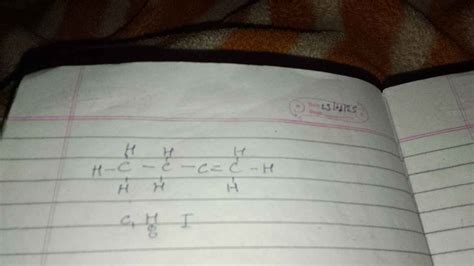 H H H
H-C-C-C=C-H
H H H
C, H I
8